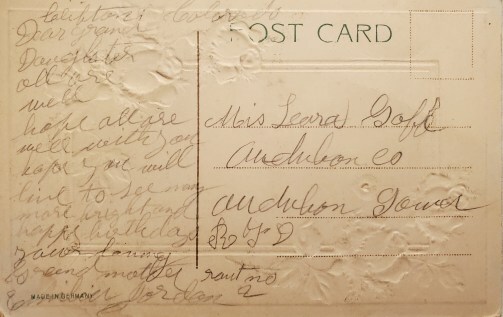 Clifton Colorado
Dear grand
Daughter
all are
well
hope all are
well with you
hope you will
live to see many
more bright and
happy birthdays
your loving
grand mother
Jordan
MADE IN GERMANY
POST CARD
Mis Leara Goff
Audubon co
Audubon Iowa
R F D
rout no
2